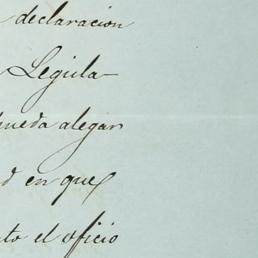 declaracion
Legisla-
pueda alegar
d en que
to el oficio